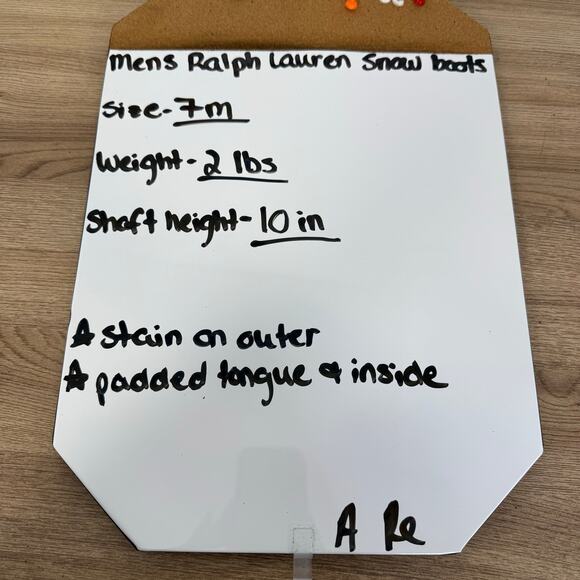 mens Ralph Lauren Snow boots
Size- 7m
Weight- 2 lbs
Shaft height- 10 in
☆ stain on outer
☆ padded tongue & inside
A Re